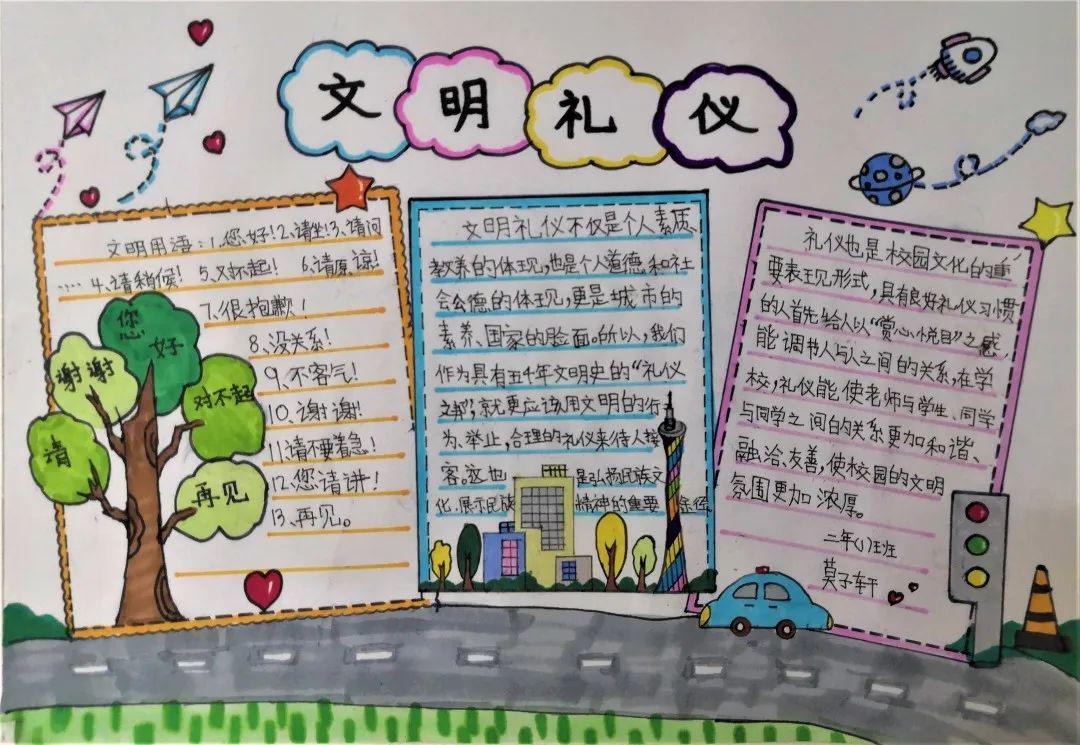 文明礼仪
文明用语:1.您好!2.请坐!3.请问
....4.请稍候!5.对不起!6.请原谅!
7.很抱歉!
8.没关系!
9.不客气!
10.谢谢!
11.请不要着急!
12.您请讲!
13.再见。
您好
谢谢
对不起
请
再见
文明礼仪不仅是个人素质、
教养的体现,也是个人道德和社
会公德的体现,更是城市的
素养、国家的脸面。所以,我们
作为具有五千年文明史的“礼仪
之邦”,就更应该用文明的行
为、举止,合理的礼仪来待人接
客。这也是弘扬民族文
化、展示民族精神的重要途径。
礼仪也是校园文化的重
要表现形式,具有良好礼仪习惯
的人首先给人以“赏心悦目”之感,
能调书人与人之间的关系,在学
校,礼仪能使老师与学生、同学
与同学之间的关系更加和谐、
融洽、友善,使校园的文明
氛围更加浓厚。
二年(1)班
莫子轩